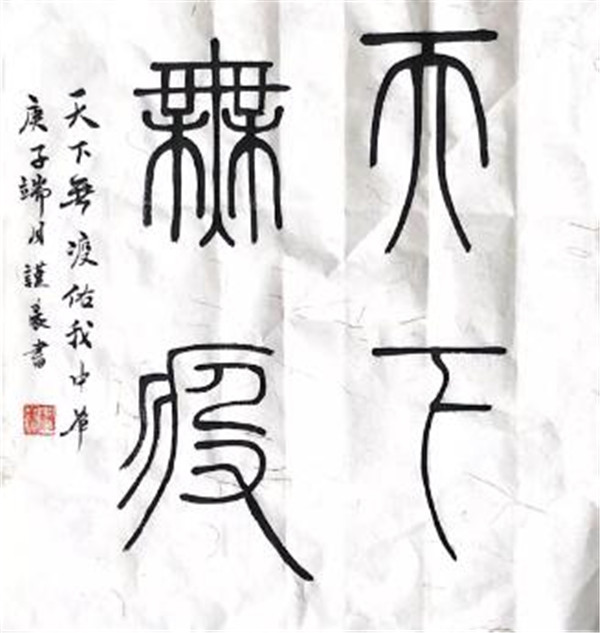 天下
無疫
天下無疫佑我中華
庚子端月謹書